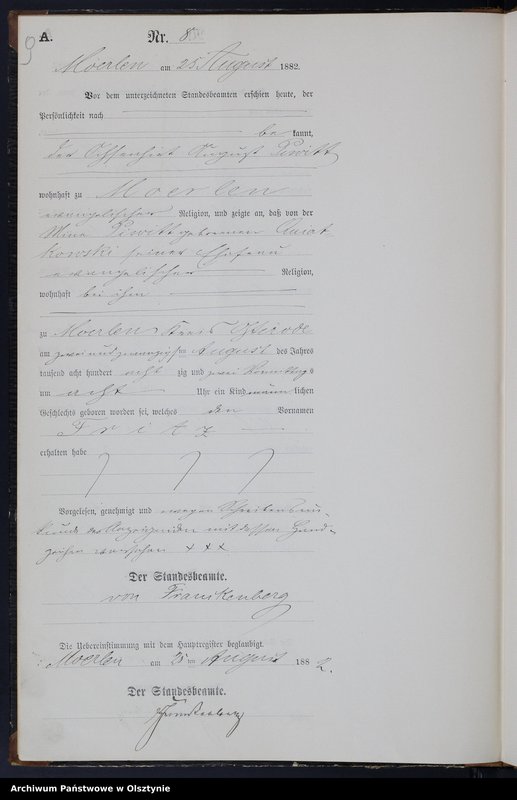 9
A.
Nr. 8
Moerlen am 25 August 1882.
Vor dem unterzeichneten Standesbeamten erschien heute, der
Persönlichkeit nach
be kannt,
der Ochsenhirt August Piwitt
wohnhaft zu Moerlen
evangelischer Religion, und zeigte an, daß von der
Mine Piwitt geborenen
kowski seiner Ehefrau
evangelischer Religion,
wohnhaft bei ihm
zu Moerlen Kreis Osterode
am zwei und zwanzigsten August des Jahres
tausend acht hundert acht zig und zwei Vormittags
um acht Uhr ein Kind männlichen
Geschlechts geboren worden sei, welches den Vornamen
Fritz
erhalten habe
Vorgelesen, genehmigt und wegen Schreibensun-
kunde des Anzeigenden mit dessen Hand-
zeichen versehen + + +
Der Standesbeamte.
von Frankenberg
Die Uebereinstimmung mit dem Hauptregister beglaubigt.
Moerlen am 25 ten August 1882.
Der Standesbeamte.
Frankenberg
Archiwum Państwowe w Olsztynie